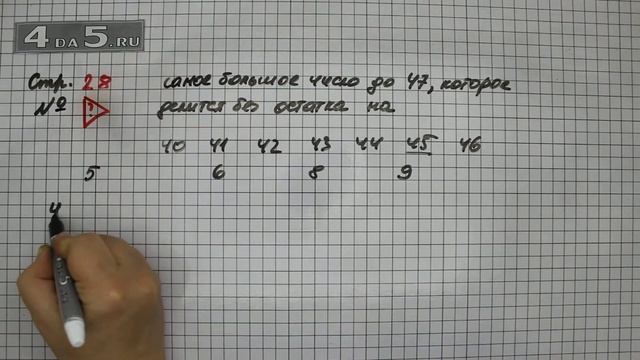 4DA5.RU
Стр. 28 самое большое число до 47, которое
№ ? делится без остатка на
40 41 42 43 44 45 46
5 6 8 9
4